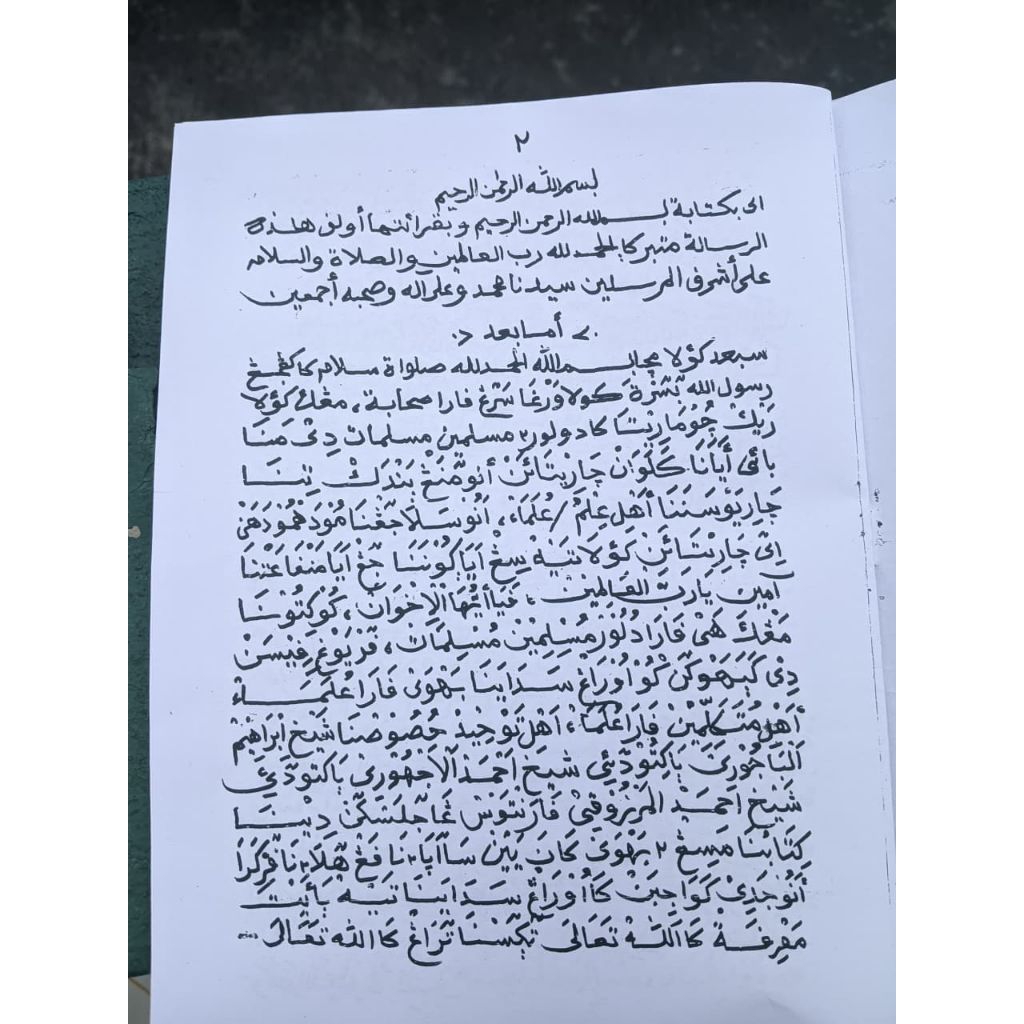 ٢
بسم الله الرحمن الرحيم
الى بكتابة بسم الله الرحمن الرحيم وبقرائتهما أولى هذه
الرسالة متبركا الحمد لله رب العالمين والصلاة والسلام
على أشرف المرسلين سيدنا محمد وعلى اله وصحبه أجمعين
أما بعد
سبعد كؤلا مجا بسم الله الحمد لله صلواة سلام كا كڠجڠ
رسول الله كولاورڮا سرڠ فارا صحابة، مڠك كؤلا
ريك چوماريتا كا دولور٢ مسلمين مسلمات دي منا
بائي أيانا كلوان چاريتائن أنو منڠ بندك تينا
چاريوسننا أهل علم / علماء، انو سلا جڠنا مودهمودهن
اتي چاريتائن كؤلا تيه سيڠ ايا كوننا جڠ ايا منفاعتنا
آمين يا رب العالمين، فيا أيها الإخوان، كو كتوسا
مڠك هي فارا دولور مسلمين مسلمات، فريوڮي فيسن
دي كپهوكن كو أوراڠ سداينا بهوى فارا علماء
أهل متكلمين فارا علماء، اهل توحيد خصوصنا شيخ ابراهيم
الباجوري باكتودئي شيخ احمد الاجهوري باكتودئي
شيخ احمد المرزوقي فارنتوس ڠاجلسكن دينا
كتابنا مسيڠ ٢ بهوى كان
أنو جدي كواجبن كا أوراڠ سداينا تيه بأيت
معرفة كا الله تعالى تڮسنا تراڠ كا الله تعالى